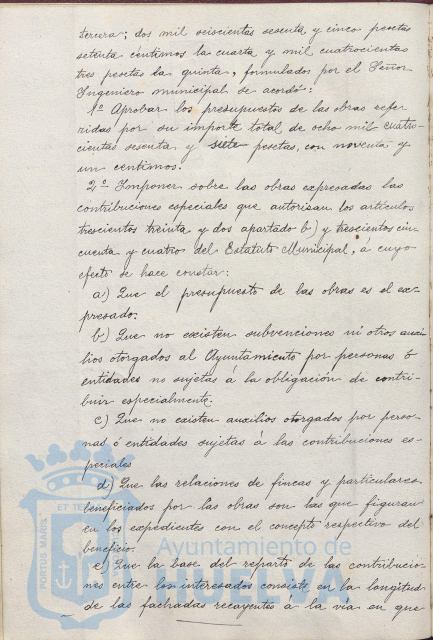 tercera; dos mil seiscientas sesenta y cinco pesetas
setenta céntimos la cuarta y mil cuatrocientas
tres pesetas la quinta, formulados por el Señor
Ingeniero municipal se acordó:
1º Aprobar los presupuestos de las obras refe-
ridas por su importe total de ocho mil cuatro-
cientas sesenta y siete pesetas, con noventa y
un centimos.
2º Imponer sobre las obras expresadas las
contribuciones especiales que autorisan los artículos
trescientos treinta y dos apartado b) y trescientos cin
cuenta y cuatro del Estatuto Municipal, á cuyo
efecto se hace constar:
a) Que el presupuesto de las obras es el ex-
presado.
b) Que no existen subvenciones ni otros auxi-
lios otorgados al Ayuntamiento por personas ó
entidades no sujetas á la obligación de contri-
buir especialmente.
c) Que no existen auxilios otorgados por perso-
nas ó entidades sujetas á las contribuciones es-
peciales
d) Que las relaciones de fincas y particulares
beneficiados por las obras son las que figuran
en los expedientes con el concepto respectivo del
beneficio.
e) Que la base del reparto de las contribucio-
nes entre los interesados consiste en la longitud
de las fachadas recayentes á la via en que
PORTUS MARIS
ET TE
Ayuntamiento de